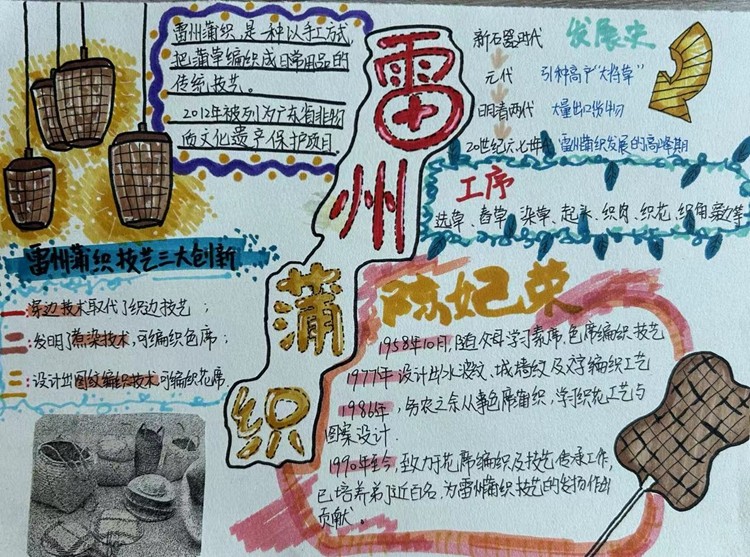 雷州蒲织
雷州蒲织，是一种以手工方式，
把蒲草编织成日常用品的
传统技艺。
2012年被列为广东省非物
质文化遗产保护项目。
发展史
新石器时代
元代 引种高产"大烽草"
明清两代 大量出口货物
20世纪六七十年代 雷州蒲织发展的高峰期
工序
选草、舂草、染草、起头、织肉、织花、织角、裁边等
雷州蒲织技艺三大创新
一 穿边技术取代了织边技艺；
二 发明了煮染技术，可编织色席；
三 设计出图纹编织技术可编织花席.
陈妃荣
1958年10月，随父母学习素席、色席编织技艺
1977年设计出水波纹、城墙纹及文字编织工艺
1986年，务农之余从事色席蒲织，学习织花工艺与
图案设计.
1990年至今，致力于花席编织及技艺传承工作，
已培养弟子近百名，为雷州蒲织技艺的发扬作出
贡献。